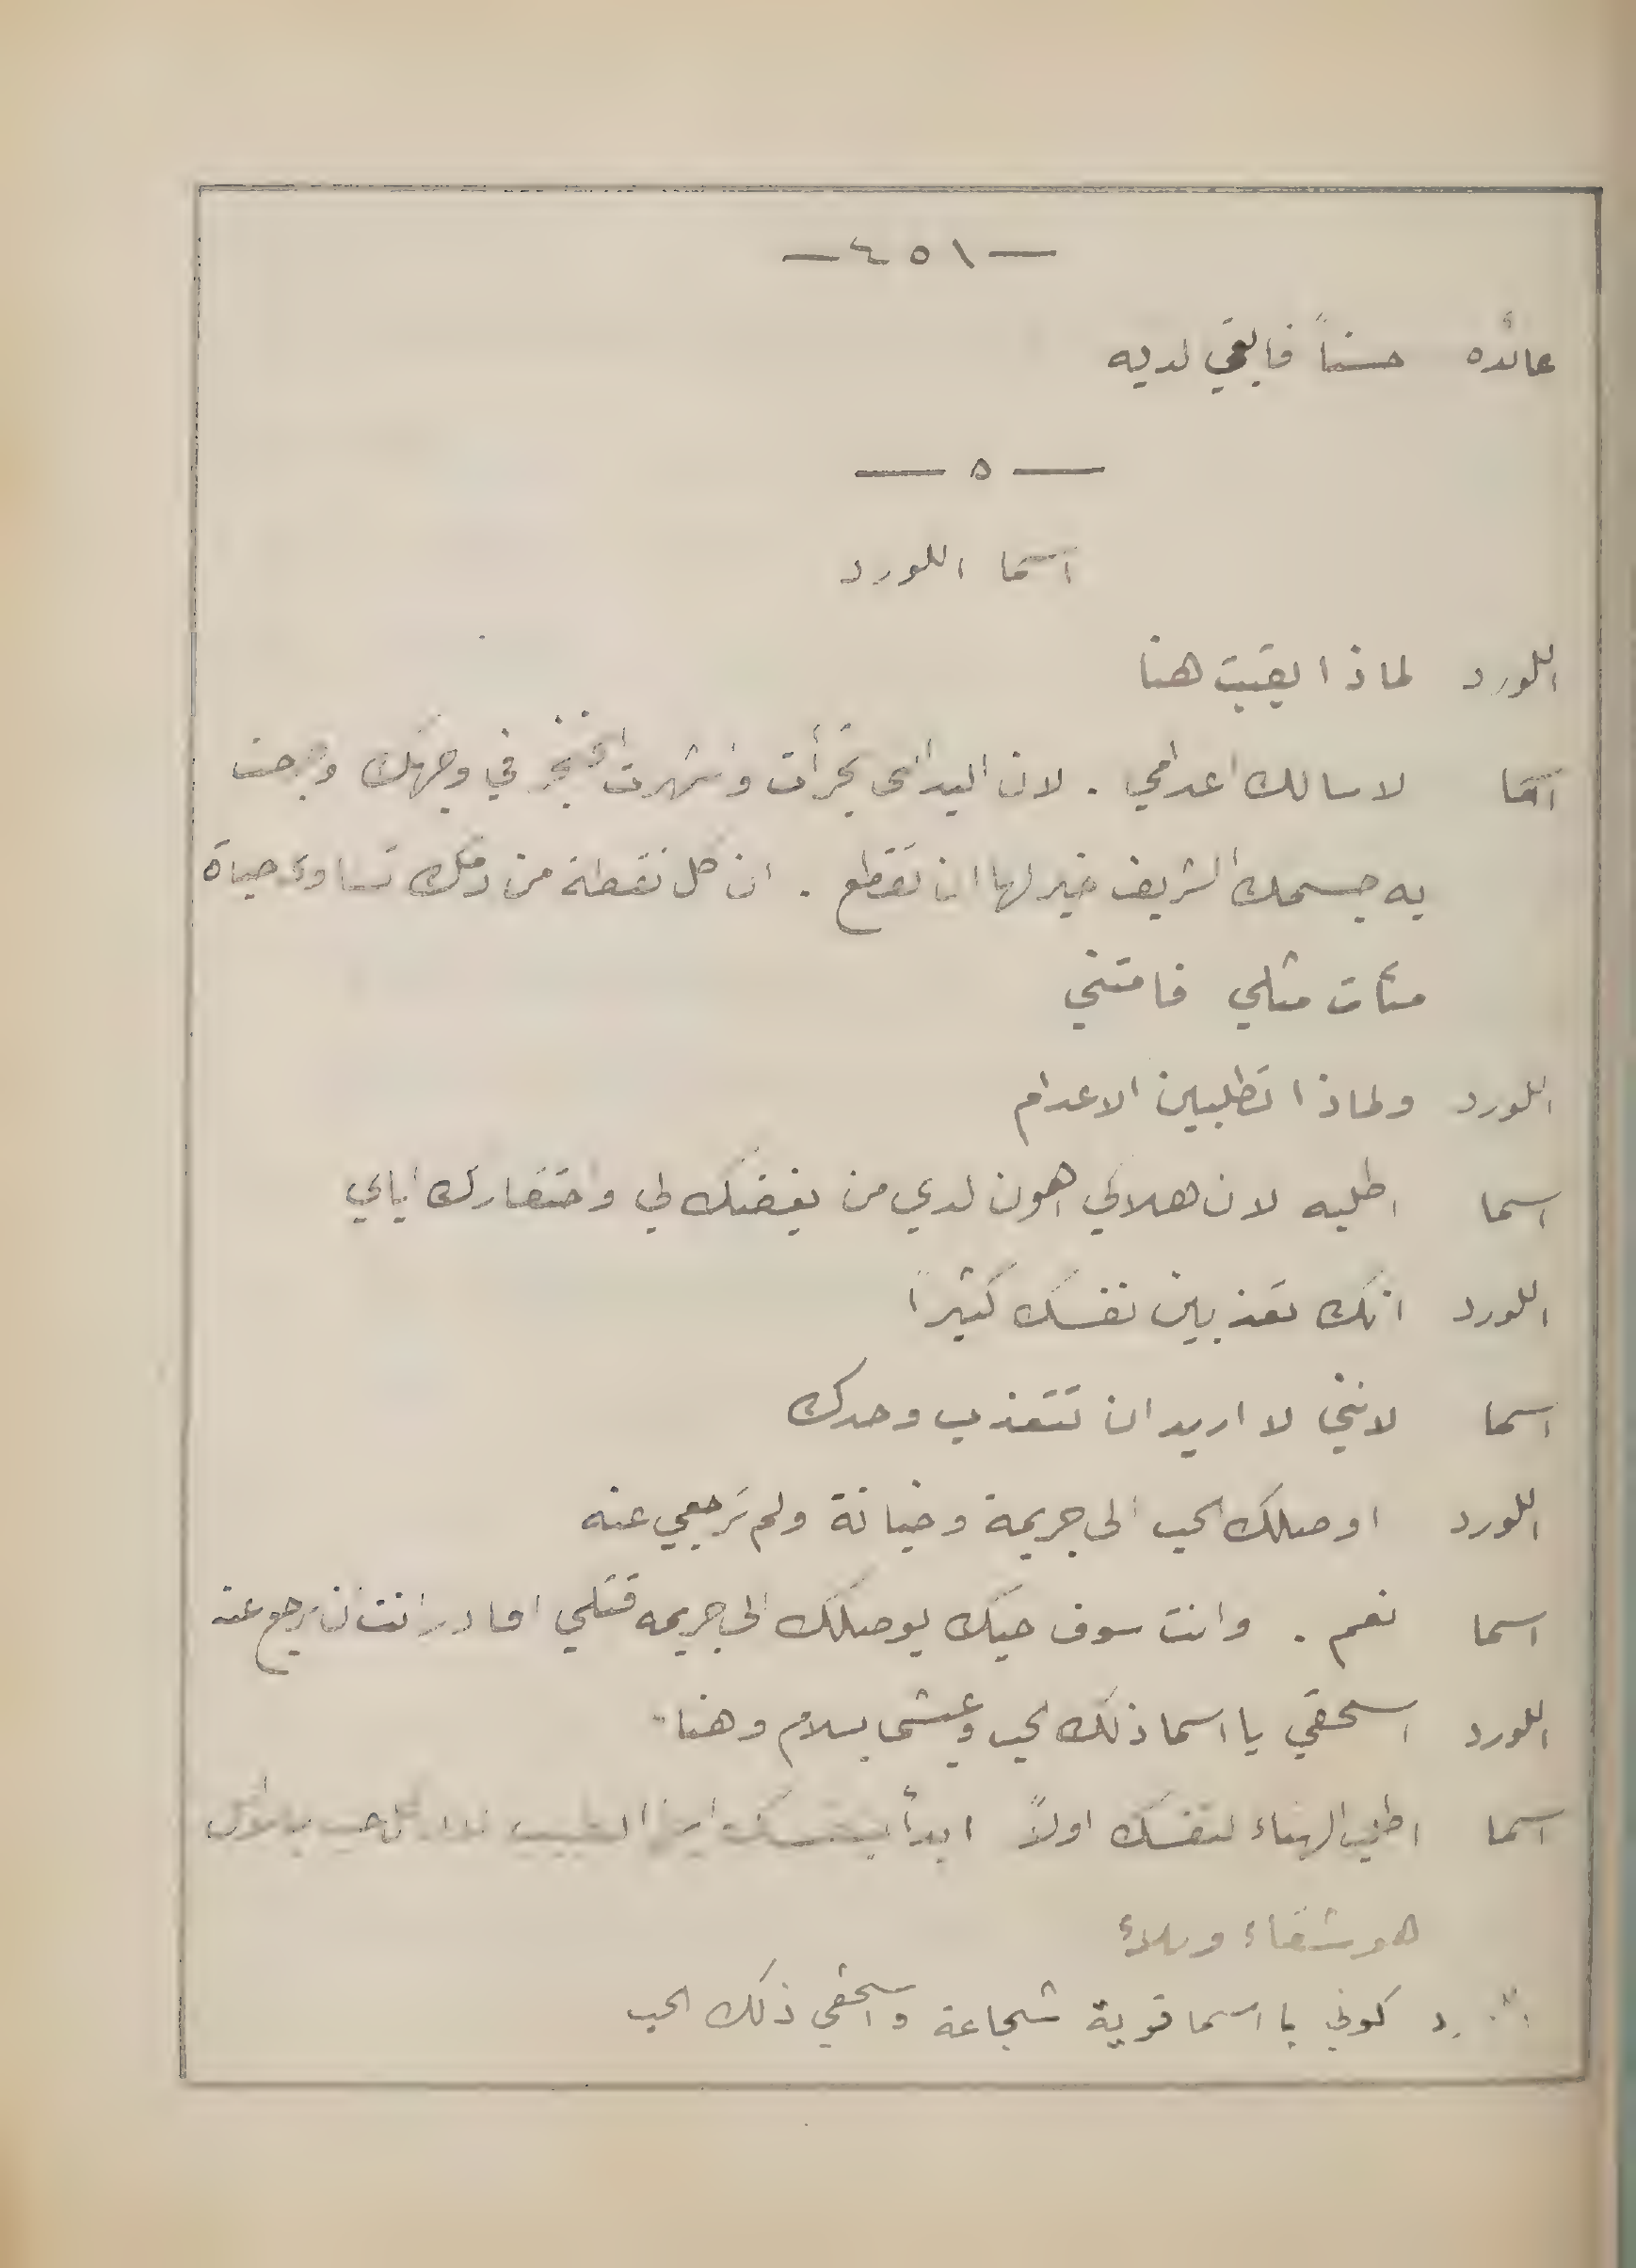 — ٤٥١ —
عائده حسناً فابقي لديه
— ٥ —
اسما اللورد
اللورد لماذا بقيت هنا
اسما لاسالك اعدامي . لان اليد التى تجرأت وشهرت الخنجر في وجهك وجرحت
به جسمك الشريف خير لها ان تقطع . ان كل نقطة من دمك تساوى حياة
مئات مثلي فامتني
اللورد ولماذا تطلبين الاعدام
اسما اطلبه لان هلاكي اهون لدي من بغضك لي واحتقارك اياي
اللورد انك تعذبين نفسك كثيراً
اسما لانني لا اريد ان تتعذب وحدك
اللورد اوصلك الحب الى جريمة وخيانة ولم ترجعي عنه
اسما نعم . وانت سوف حبك يوصلك الى جريمه قتلي افا در انت ان ترجع عنه
اللورد اسحقي يا اسما ذلك الحب وعيشي بسلام وهناء
اسما اطلب الهناء لنفسك اولاً ابدأ بنفسك ايها الطبيب
هو شقاء وبلاء
كوني يا اسما قوية شجاعة واسحقي ذلك الحب